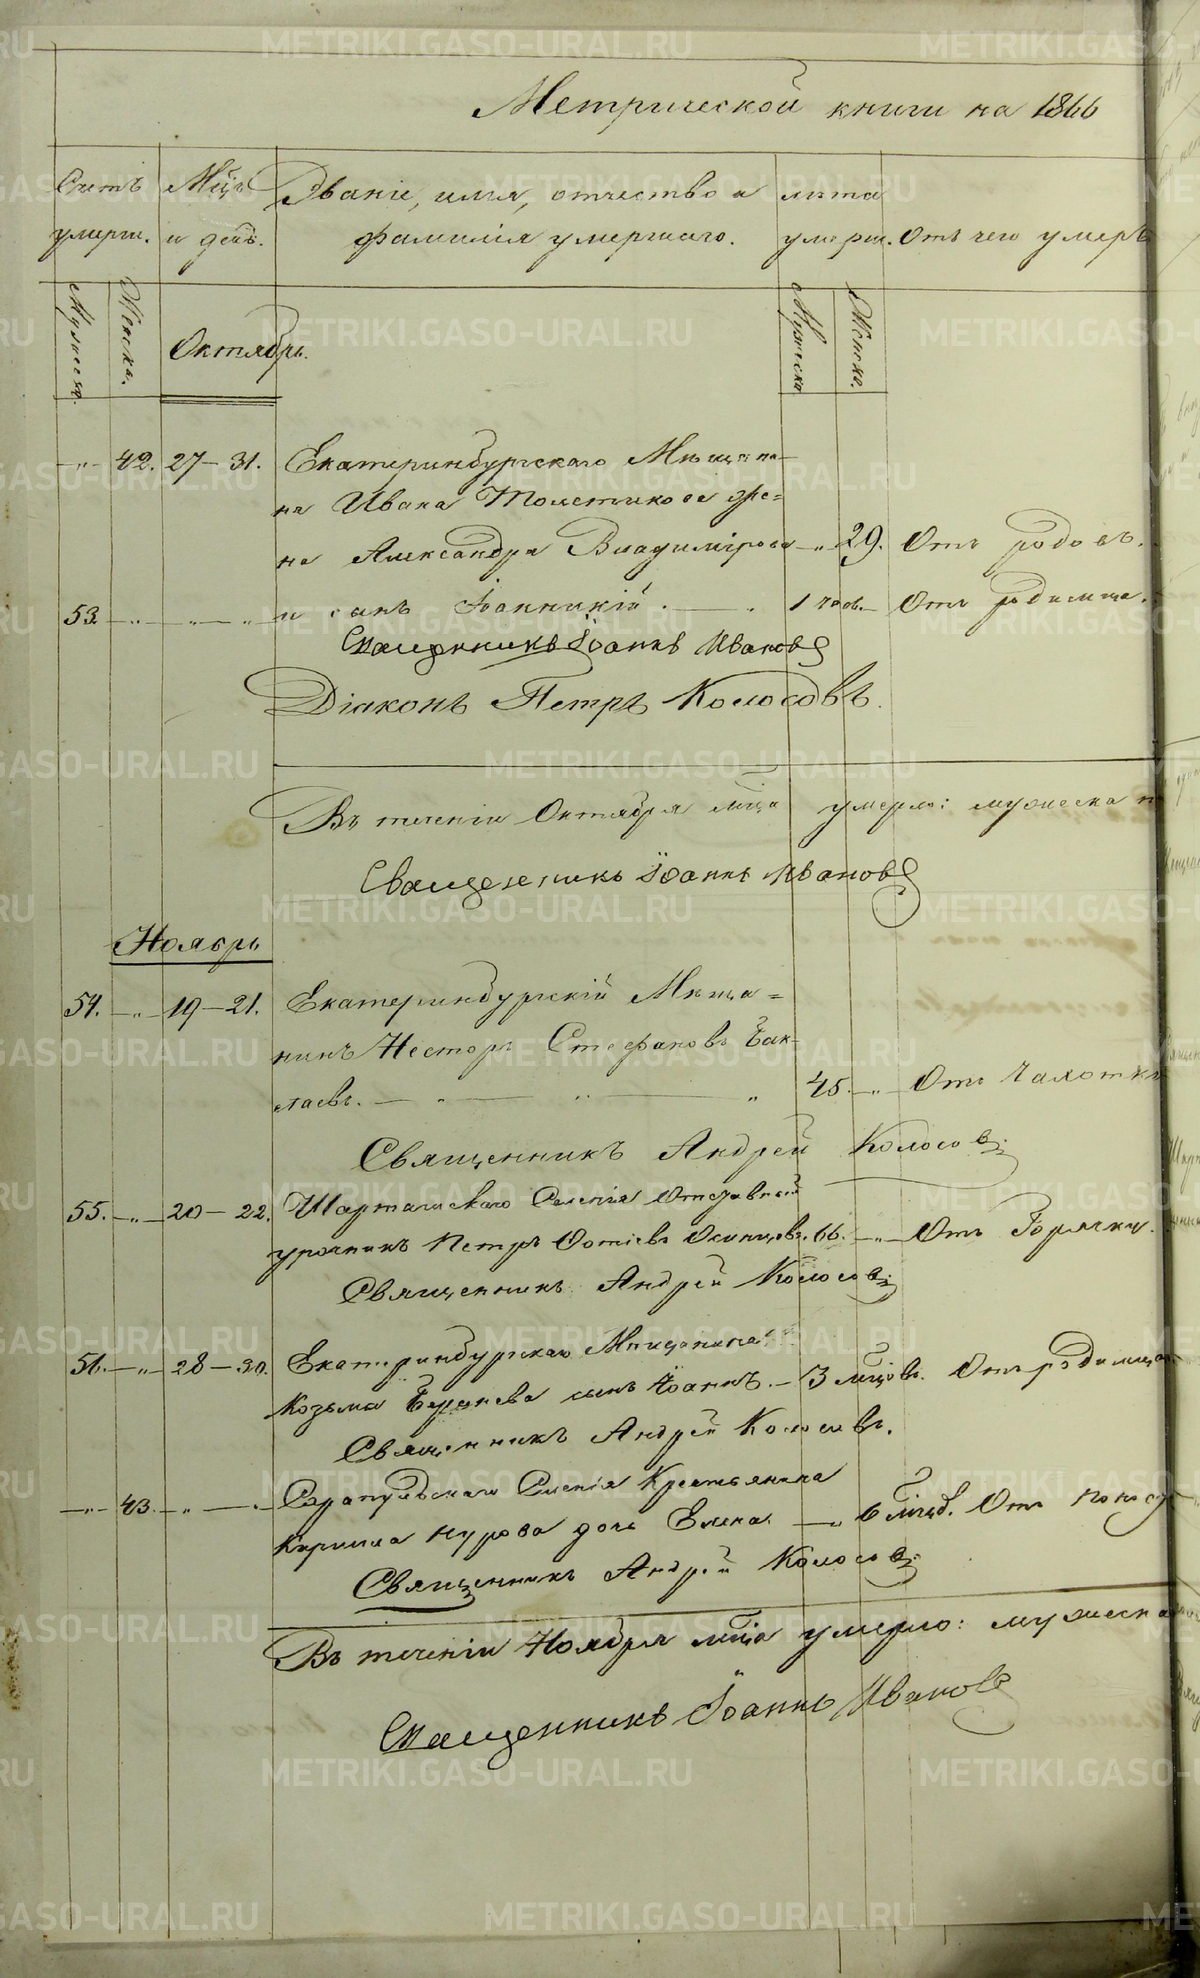 Метрической книги на 1866
Счетъ Мѣць Званіе, имя, отчество и лѣта
умерш. и день. фамилія умершаго. умерш. Отъ чего умеръ
Мужеска. Женска. Октябрь. Мужеска Женска.
-"- 42. 27-31. Екатеринбургскаго Мѣщани-
на Ивана Толстикова же=
на Александра Владимірова -"- 29. Отъ родовъ.
53. -"- -"- " и сынъ Іоанникій. — " 1 часъ. — Отъ родимца.
Священникъ Іоаннъ Ивановъ
Діаконъ Петръ Колосовъ.
Въ теченіи Октября мѣца умерло: мужеска
Священникъ Іоаннъ Ивановъ
Ноябрь
54. -"- 19-21. Екатеринбургскій Мѣща=
нинъ Несторъ Стефановъ Бак-
лаевъ. — " — " — " 45. -"- Отъ Чахотки
Священникъ Андрей Колосовъ
55. -"- 20-22. Шарташскаго Селенія Отставный
урочникъ Петръ Фотіевъ Осинцевъ. 66. -"- Отъ Горячки.
Священникъ Андрей Колосовъ
56. -"- 28-30. Екатеринбургскаго Мѣщанина
Козьма сынъ Іоаннъ. — 3 мѣцовъ. Отъ родимца
Священникъ Андрей Колосовъ.
-"- 43. -"- — " Сарапульскаго Селенія Крестьянина
Кирилла Нурова дочь Елена. -"- 6 мѣцовъ. Отъ поносу
Священникъ Андрей Колосовъ
Въ теченіи Ноября мѣца умерло: мужеска
Священникъ Іоаннъ Ивановъ
METRIKI.GASO-URAL.RU